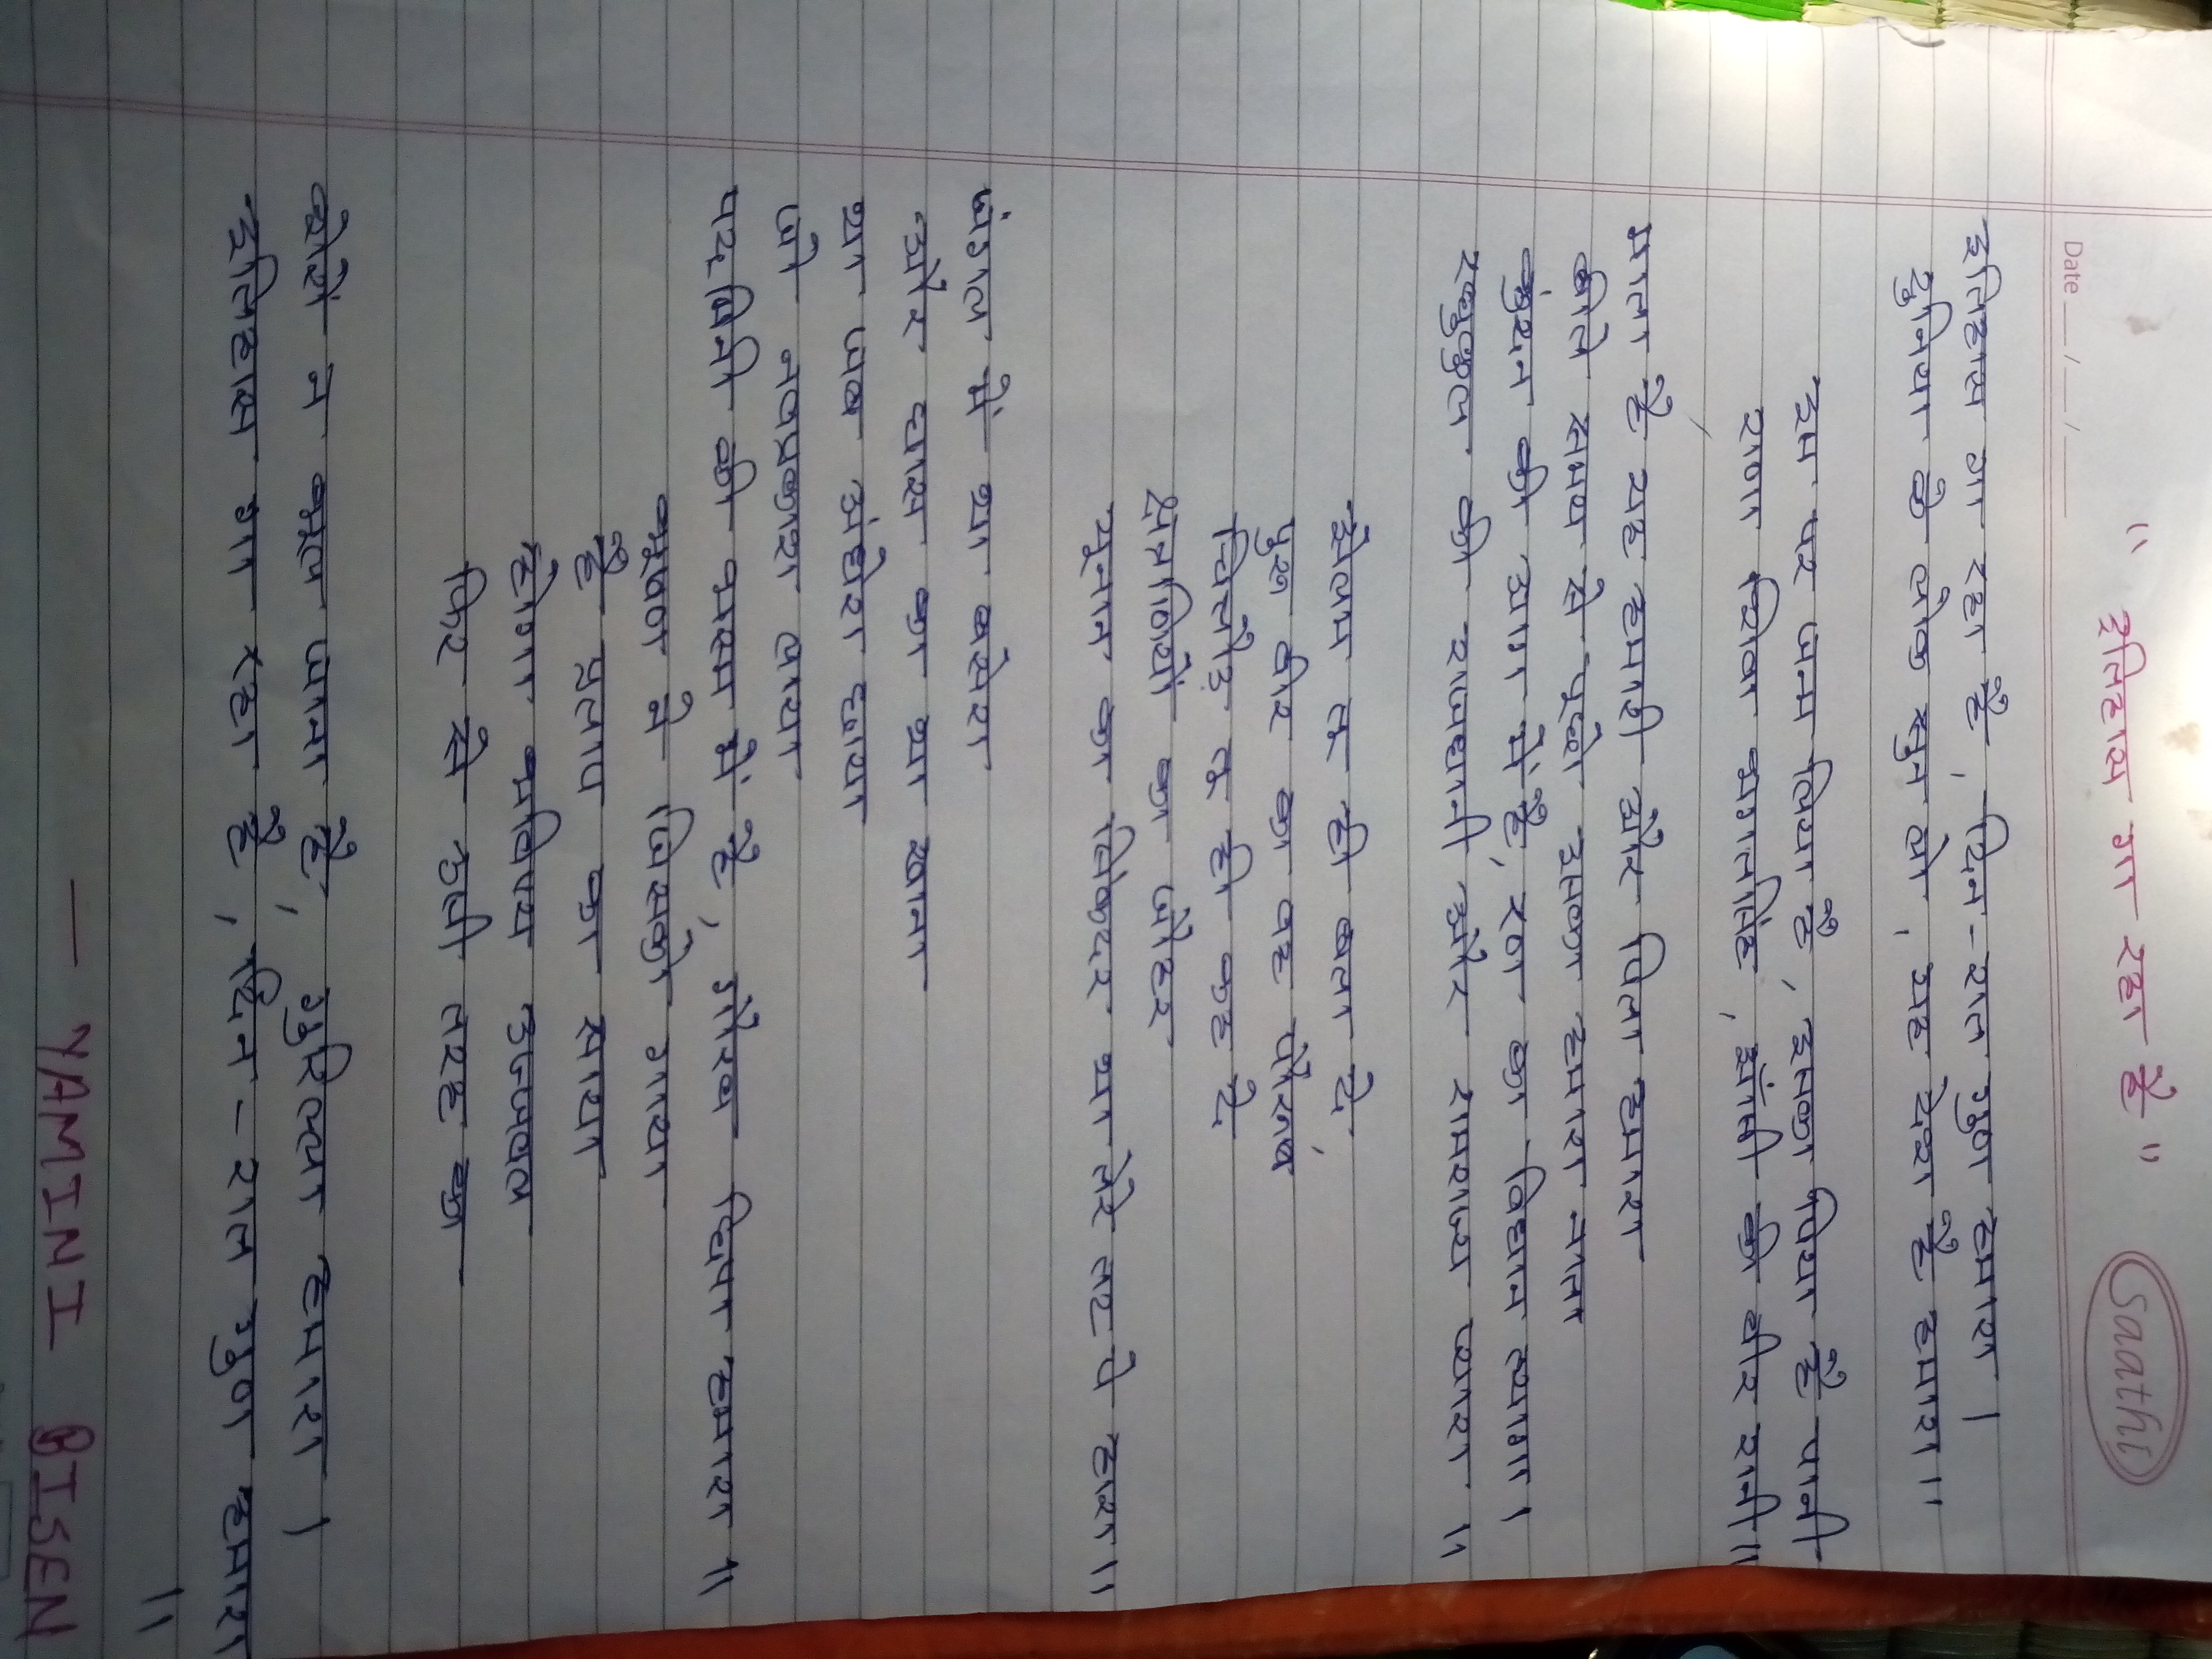 " इतिहास गा रहा है "
saathi
Date __/__/__
इतिहास गा रहा है, दिन - रात गुण हमारा।
दुनिया के लोक सुन लो, यह देश है हमारा।।
इस पर जनम लिया है, इसका पिया है पानी
राणा शिवा भगतसिंह, झांसी की वीर रानी।।
माता है यह हमारी और पिता हमारा
बीते समय से पूछो इसका हमारा नाता
कुंदन की आग में है, रण का विधान त्यागा।
रघुकुल की राजधानी और रामराज्य प्यारा।।
झेलम तू ही बता दे,
पुरु वीर का वह पौरुष
चित्तौड़ तू ही कह दे
क्षत्राणियों का जौहर
यूनान का सिकंदर था तेरे तट पे हारा।।
जंगल में था बसेरा
और घास का था खाना
था जब अंधेरा छाया
जो नवप्रकाश लाया
पदमिनी की भस्म में है, गौरव छिपा हमारा॥
भूषण ने जिसको गाया
है प्रताप का साया
होगा भविष्य उज्जवल
फिर से उसी तरह का
वीरों ने जन्म है, हमारा।
इतिहास गा रहा है, दिन - रात गुण हमारा
।।
— YAMINI BISEN